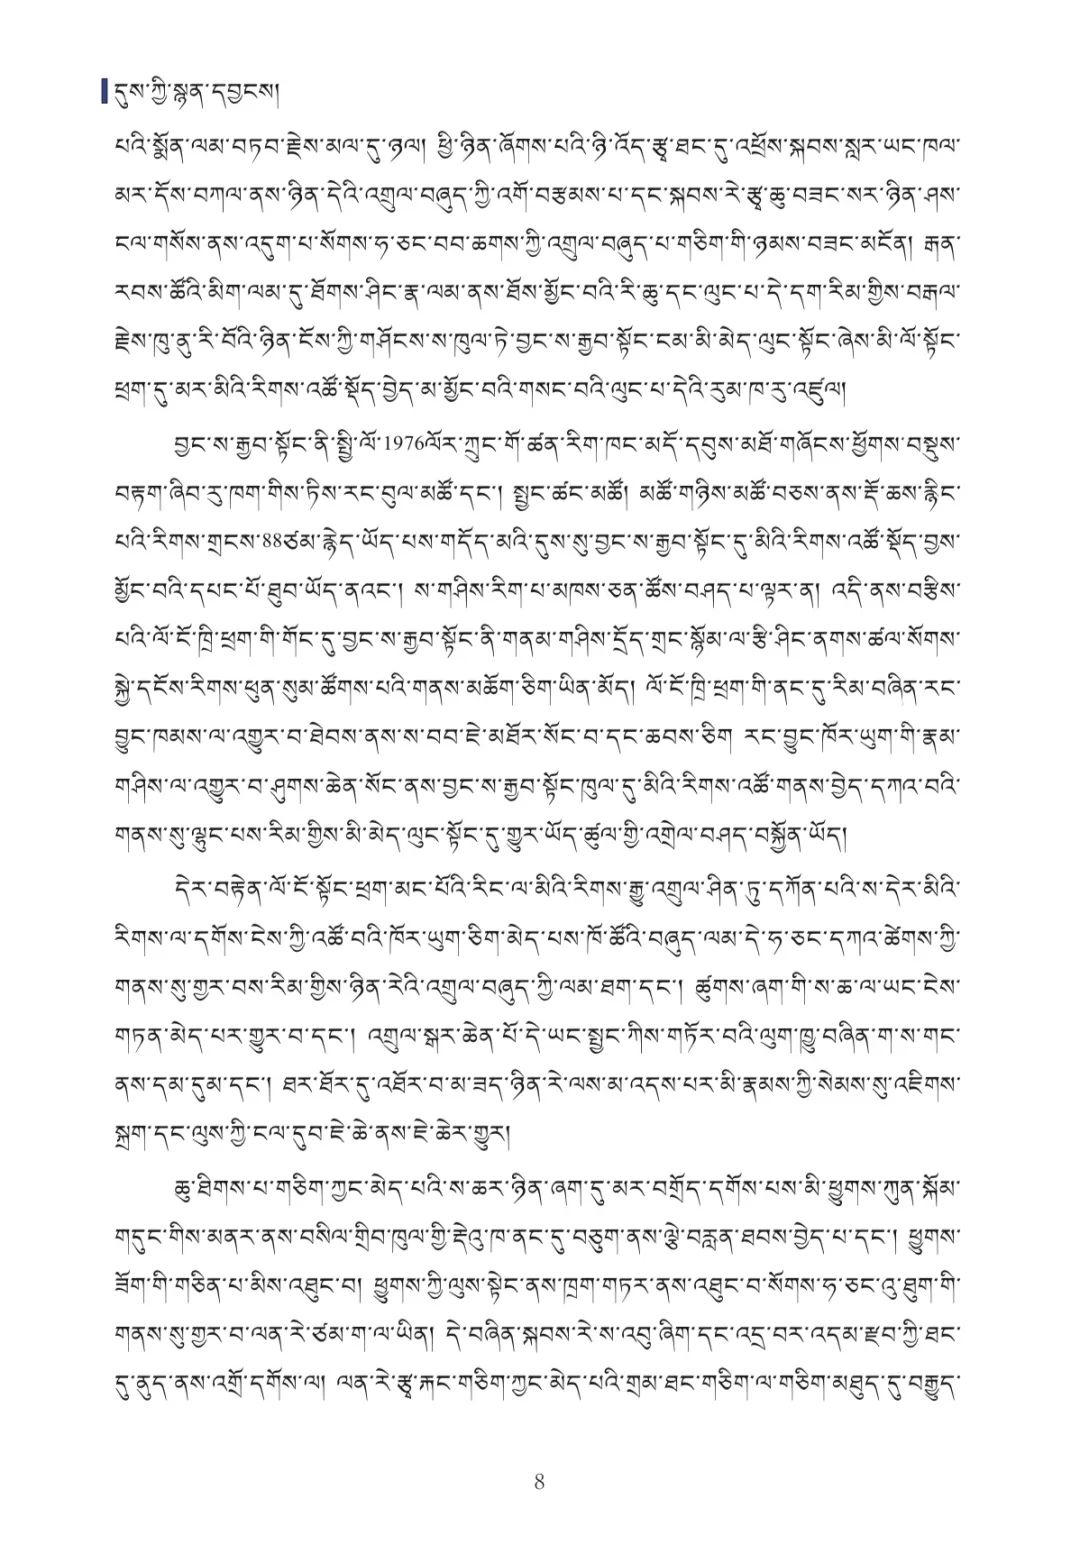 དུས་ཀྱི་སྙན་དབྱངས།
པའི་སྨོན་ལམ་བཏབ་རྗེས་མལ་དུ་ཉལ། ཕྱི་ཉིན་ཞོགས་པའི་ཉི་འོད་རྩྭ་ཐང་དུ་འཕྲོས་སྐབས་སླར་ཡང་ཁལ་
མར་དོས་བཀལ་ནས་ཉིན་དེའི་འགྲུལ་བཞུད་ཀྱི་འགོ་བརྩམས་པ་དང་སྐབས་རེ་རྩྭ་ཆུ་བཟང་སར་ཉིན་ཤས་
ངལ་གསོས་ནས་འདུག་པ་སོགས་ཧ་ཅང་བབ་ཆགས་ཀྱི་འགྲུལ་བཞུད་པ་གཅིག་གི་ཉམས་བཟང་མངོན། རྒན་
རབས་ཚོའི་མིག་ལམ་དུ་ཐོགས་ཤིང་རྣ་ལམ་ནས་ཐོས་མྱོང་བའི་རི་ཆུ་དང་ལུང་པ་དེ་དག་རིམ་གྱིས་བརྒལ་
རྗེས་ཁུ་ནུ་རི་བོའི་ཉིན་ངོས་ཀྱི་གཤོངས་ས་ཁུལ་ཏེ་བྱང་ས་རྒྱབ་སྟོང་ངམ་མི་མེད་ལུང་སྟོང་ཞེས་མི་ལོ་སྟོང་
ཕྲག་དུ་མར་མིའི་རིགས་འཚོ་སྡོད་བྱེད་མ་མྱོང་བའི་གསང་བའི་ལུང་པ་དེའི་རུམ་ཁ་རུ་འཛུལ།
བྱང་ས་རྒྱབ་སྟོང་ནི་སྤྱི་ལོ་1976ལོར་ཀྲུང་གོ་ཚན་རིག་ཁང་མདོ་དབུས་མཐོ་གཞོངས་ཕྱོགས་བསྡུས་
བརྟག་ཞིབ་རུ་ཁག་གིས་ཏིས་རང་བུལ་མཚོ་དང་། སྤྱང་ཚང་མཚོ། མཚོ་གཉིས་མཚོ་བཅས་ནས་རྡོ་ཆས་རྙིང་
པའི་རིགས་གྲངས་88ཙམ་རྙེད་ཡོད་པས་གདོད་མའི་དུས་སུ་བྱང་ས་རྒྱབ་སྟོང་དུ་མིའི་རིགས་འཚོ་སྡོད་བྱས་
མྱོང་བའི་དཔང་པོ་ཐུབ་ཡོད་ནའང་། ས་གཤིས་རིག་པ་མཁས་ཅན་ཚོས་བཤད་པ་ལྟར་ན། འདི་ནས་བརྩིས་
པའི་ལོ་ངོ་ཁྲི་ཕྲག་གི་གོང་དུ་བྱང་ས་རྒྱབ་སྟོང་ནི་གནམ་གཤིས་དྲོད་གྲང་སྙོམ་ལ་རྩི་ཤིང་ནགས་ཚལ་སོགས་
སྐྱེ་དངོས་རིགས་ཕུན་སུམ་ཚོགས་པའི་གནས་མཆོག་ཅིག་ཡིན་མོད། ལོ་ངོ་ཁྲི་ཕྲག་གི་ནང་དུ་རིམ་བཞིན་རང་
བྱུང་ཁམས་ལ་འགྱུར་བ་ཐེབས་ནས་ས་བབ་ཇེ་མཐོར་སོང་བ་དང་ཆབས་ཅིག རང་བྱུང་ཁོར་ཡུག་གི་རྣམ་
གཤིས་ལ་འགྱུར་བ་ཤུགས་ཆེན་སོང་ནས་བྱང་ས་རྒྱབ་སྟོང་ཁུལ་དུ་མིའི་རིགས་འཚོ་གནས་བྱེད་དཀའ་བའི་
གནས་སུ་ལྷུང་པས་རིམ་གྱིས་མི་མེད་ལུང་སྟོང་དུ་གྱུར་ཡོད་ཚུལ་གྱི་འགྲེལ་བཤད་བསྐྱོན་ཡོད།
དེར་བརྟེན་ལོ་ངོ་སྟོང་ཕྲག་མང་པོའི་རིང་ལ་མིའི་རིགས་རྒྱུ་འགྲུལ་ཤིན་ཏུ་དཀོན་པའི་ས་དེར་མིའི་
རིགས་ལ་དགོས་ངེས་ཀྱི་འཚོ་བའི་ཁོར་ཡུག་ཅིག་མེད་པས་ཁོ་ཚོའི་བཞུད་ལམ་དེ་ཧ་ཅང་དཀའ་ཚེགས་ཀྱི་
གནས་སུ་གྱར་བས་རིམ་གྱིས་ཉིན་རེའི་འགྲུལ་བཞུད་ཀྱི་ལམ་ཐག་དང་། ཚུགས་ཞག་གི་ས་ཆ་ལ་ཡང་ངེས་
གཏན་མེད་པར་གྱུར་བ་དང་། འགྲུལ་སྒར་ཆེན་པོ་དེ་ཡང་སྤྱང་ཀིས་གཏོར་བའི་ལུག་ཁྱུ་བཞིན་ག་ས་གང་
ནས་དམ་དུམ་དང་། ཐར་ཐོར་དུ་འཐོར་བ་མ་ཟད་ཉིན་རེ་ལས་མ་འདས་པར་མི་རྣམས་ཀྱི་སེམས་སུ་འཇིགས་
སྐྲག་དང་ལུས་ཀྱི་ངལ་དུབ་ཇེ་ཆེ་ནས་ཇེ་ཆེར་གྱུར།
ཆུ་ཐིགས་པ་གཅིག་ཀྱང་མེད་པའི་ས་ཆར་ཉིན་ཞག་དུ་མར་བགྲོད་དགོས་པས་མི་ཕྱུགས་ཀུན་སྐོམ་
གདུང་གིས་མནར་ནས་བསིལ་གྲིབ་ཁུལ་གྱི་རྡེའུ་ཁ་ནང་དུ་བཅུག་ནས་ལྕེ་བརླན་ཐབས་བྱེད་པ་དང་། ཕྱུགས་
ཟོག་གི་གཅིན་པ་མིས་འཐུང་བ། ཕྱུགས་ཀྱི་ལུས་སྟེང་ནས་ཁྲག་གཏར་ནས་འཐུང་བ་སོགས་ཧ་ཅང་འུ་ཐུག་གི་
གནས་སུ་གྱར་བ་ལན་རེ་ཙམ་ག་ལ་ཡིན། དེ་བཞིན་སྐབས་རེ་ས་འབུ་ཞིག་དང་འདྲ་བར་འདམ་རྫབ་ཀྱི་ཐང་
དུ་ནུད་ནས་འགྲོ་དགོས་ལ། ལན་རེ་རྩྭ་རྐང་གཅིག་ཀྱང་མེད་པའི་གྲམ་ཐང་གཅིག་ལ་གཅིག་མཐུད་དུ་བརྒྱུད་
8